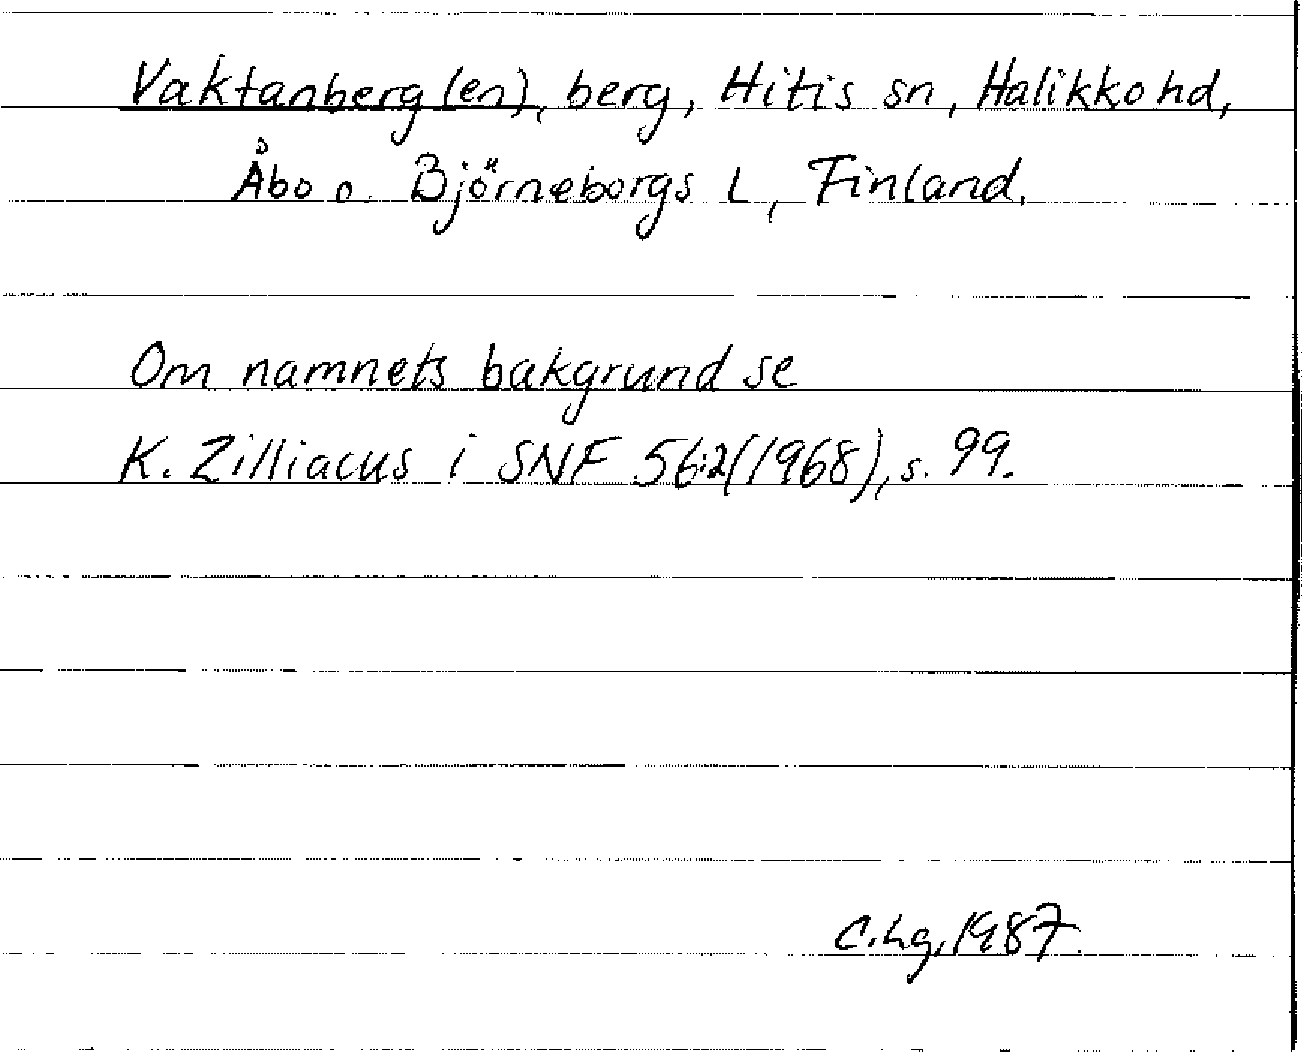 Vaktanberg(en), berg, Hitis sn, Halikko hd,
Åbo o. Björneborgs L, Finland.
Om namnets bakgrund se
K. Zilliacus i SNF 56:2(1968), s. 99.
C.Lg, 1987.